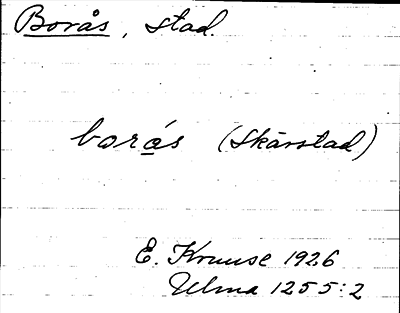 Borås, stad.
borás (Skärstad)
E. Krause 1926
Ulma 1255:2